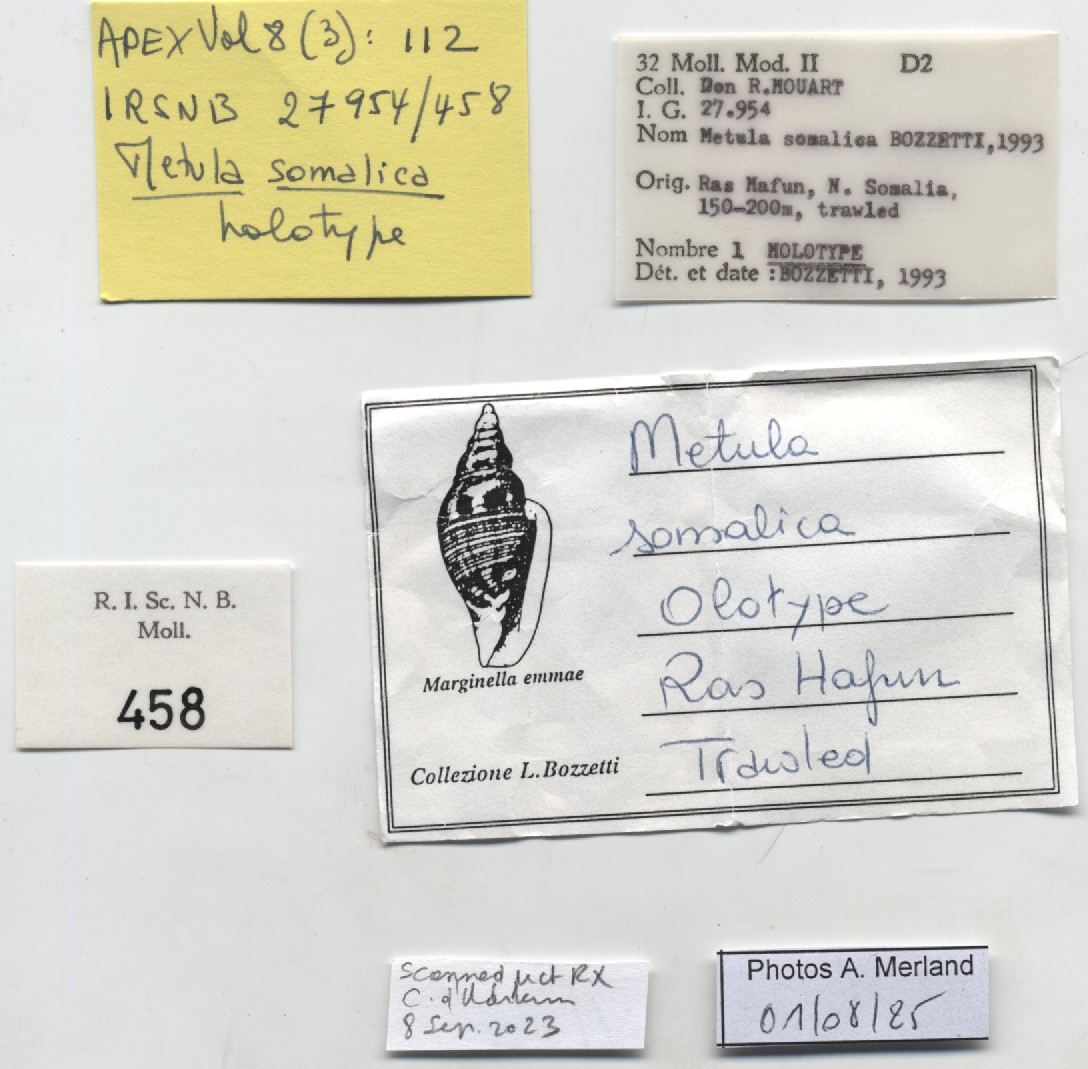 APEX Vol 8 (3): 112
IRSNB 27954/458
Metula somalica
holotype
32 Moll. Mod. II D2
Coll. Don R.MOUART
I. G. 27.954
Nom Metula somalica BOZZETTI,1993
Orig. Ras Hafun, N. Somalia,
150-200m, trawled
Nombre 1 HOLOTYPE
Dét. et date :BOZZETTI, 1993
Metula
somalica
Olotype
Ras Hafun
Trawled
Marginella emmae
Collezione L.Bozzetti
R. I. Sc. N. B.
Moll.
458
Scanned µct RX
C.
8 Sep. 2023
Photos A. Merland
01/08/25